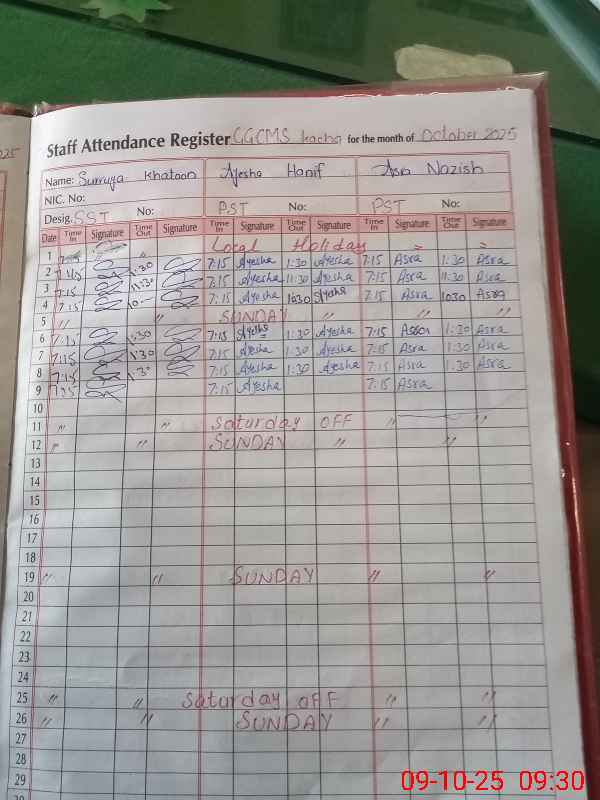 025
Staff Attendance Register CGCMS Kacha for the month of October 2025
Name: Surruya Khatoon Ayesha Hanif Asra Nazish
NIC. No:
Desig. SST No: PST No: PST No:
Date Time In Signature Time Out Signature Time In Signature Time Out Signature Time In Signature Time Out Signature
1 Local Holiday " "
2 7:15 1:30 7:15 Ayesha 1:30 Ayesha 7:15 Asra 1:30 Asra
3 7:15 11:30 7:15 Ayesha 11:30 Ayesha 7:15 Asra 11:30 Asra
4 7:15 10- 7:15 Ayesha 1030 Ayesha 7:15 Asra 1030 Asra
5 " " SUNDAY " " "
6 7:15 1:30 7:15 Ayesha 1:30 Ayesha 7:15 Asra 1:30 Asra
7 7:15 1:30 7:15 Ayesha 1:30 Ayesha 7:15 Asra 1:30 Asra
8 7:15 1:30 7:15 Ayesha 1:30 Ayesha 7:15 Asra 1:30 Asra
9 7:15 7:15 Ayesha 7:15 Asra
10
11 " " Saturday OFF " "
12 " " SUNDAY " "
13
14
15
16
17
18
19 " " SUNDAY " "
20
21
22
23
24
25 " " Saturday OFF " "
26 " " SUNDAY " "
27
28
29
09-10-25 09:30